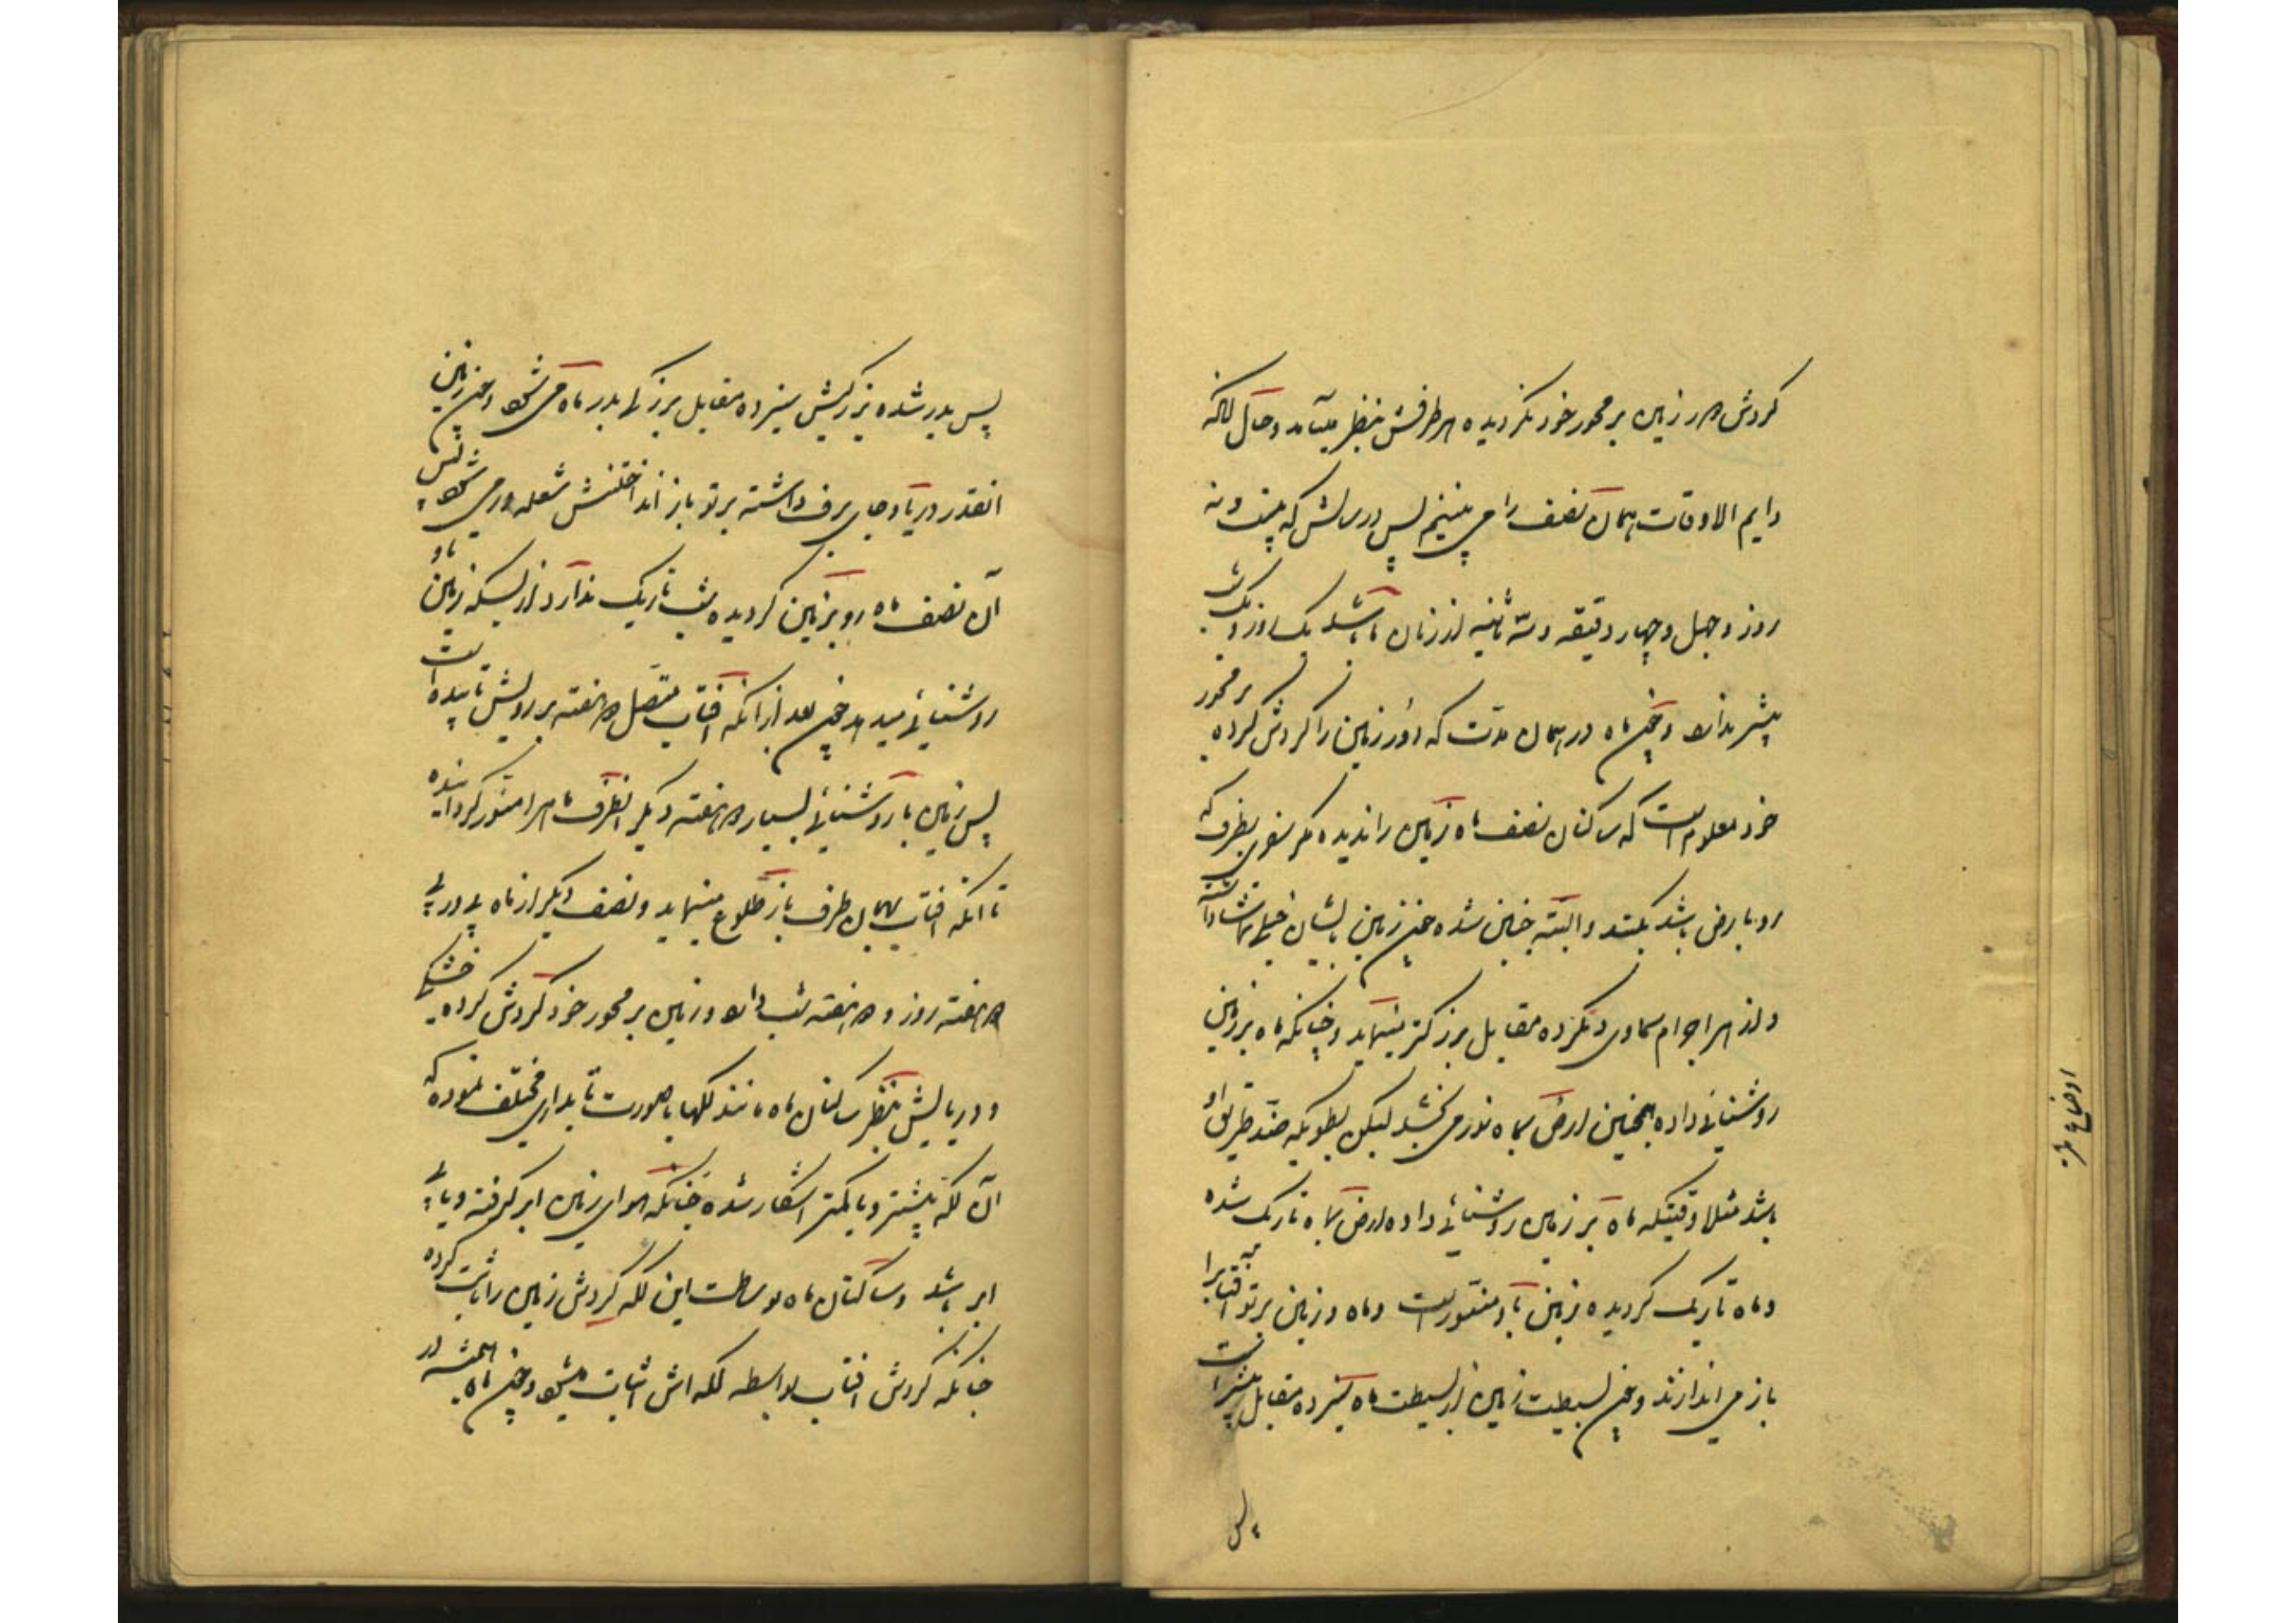 کردش دور زمین بر محور خود نکردیده هر طرفش بنظر میآمد و حال آنکه
دایم الاوقات همان نصف را می بینیم پس در سالش که بیست و نه
روز و چهل و چهار دقیقه و سه ثانیه از زمان ما باشد یک روز و یک شب
بیشتر ندارد و چون ماه در همان مدت که دور زمین را کردش کرده بر محور
خود معلوم است که ساکنان نصف ماه زمین را ندیده مکر سفری بطرف که
رو بارض باشد بکنند و البته چنین شده چون زمین بایشان خیلی تماشا دارد
و از هر اجرام سماوی دیکر ده مقابل بزرکتر مینماید و چنانکه ماه بر زمین
روشنائی داده همچنین ارض بماه نور می بخشد لیکن بطوریکه ضد طریق او
باشد مثلا وقتیکه ماه بر زمین روشنائی داده ارض بماه تاریک شده
و ماه تاریک کردیده زمین باو منور است و ماه و زمین پرتو آفتابرا بهم
باز می اندازند و چون بسیطت زمین از بسیطت ماه سیزده مقابل بیشتر است
پس
پس بدر شده بزرکیش سیزده مقابل بزرکی بدر ماه می شود و چون زمین
انقدر دریا و جای برف داشته پرتو باز انداختنش شعله ور می شود پس
آن نصف ماه رو بزمین کردیده شب تاریک ندارد از بسکه زمین باو
روشنیائی میدهد چون بعد از انکه آفتاب متصل دو هفته بر رویش تابیده است
پس زمین با روشنیائی بسیار دو هفته دیکر انطرف ماه را منور کردانیده
تا انکه آفتاب بهمان طرف باز طلوع مینماید و نصف دیکر از ماه پی در پی
دو هفته روز و دو هفته شب دارد و زمین بر محور خود کردش کرده خشکی
و دریایش بنظر ساکنان ماه مانند لکها با صورت تابداری مختلف نموده که
آن لکه بیشتر و یا کمتر اشکار شده چنانکه هوای زمین ابر کرفته و یا بی
ابر باشد و ساکنان ماه بوساطت این لکه کردش زمین را ثابت کرده
چنانکه کردش افتاب بواسطه لکه اش اثبات میشود و چون ماه همیشه در
اوضاع ماه